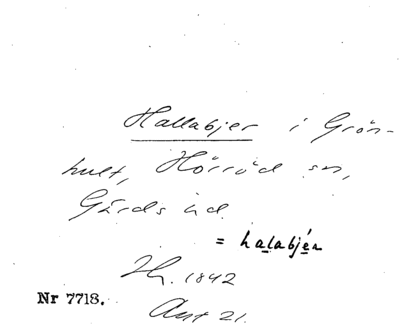 Hallabjer i Grön-
hult, Hörröd sn,
Gärds hd.
= halabjér
1842
Nr 7718.
Ant 21.